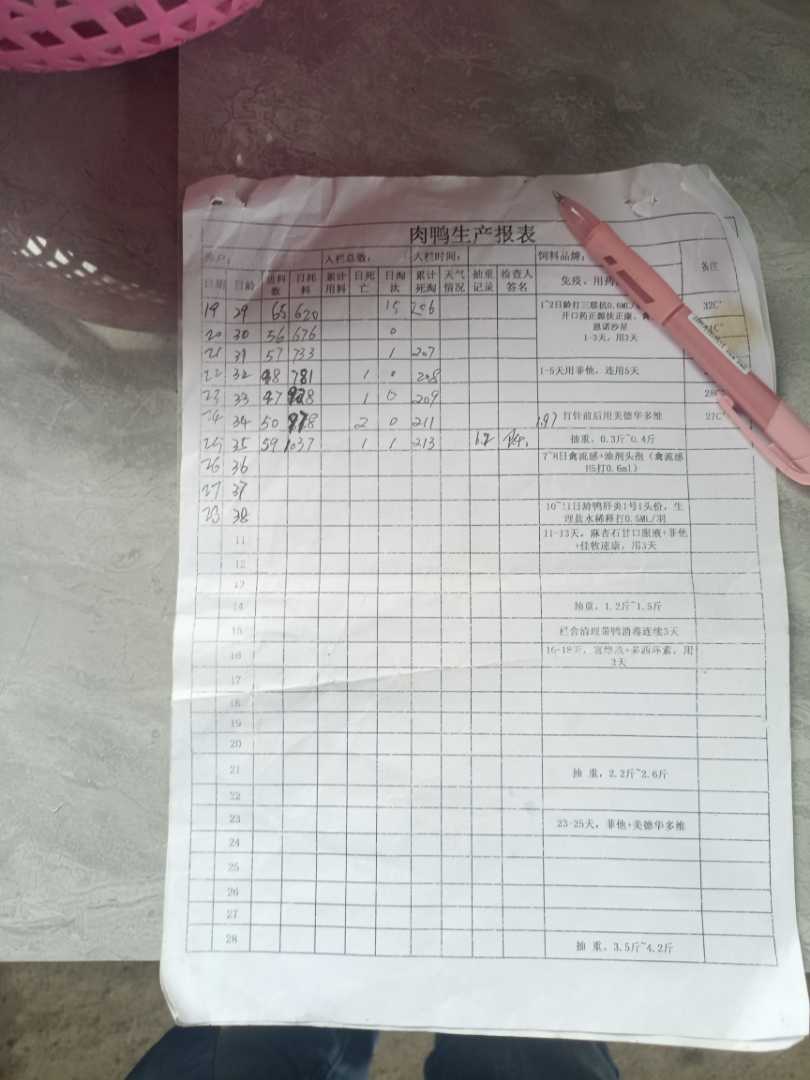 肉鸭生产报表
客户： 入栏总数： 入栏时间： 饲料品牌： 备注
日期 日龄 进料数 日耗料 累计用料 日死亡 日淘汰 累计死淘 天气情况 抽重记录 检查人签名 免疫、用药
19 29 65 620 15 206 1~2日龄打三联抗0.6ML/ 32C°
开口药正源扶正康、禽
恩诺沙星
1-3天，用3天
20 30 56 676 0
21 31 57 733 1 207
22 32 48 781 1 0 208 1-5天用菲他，连用5天
23 33 47 828 1 0 209 28C°
24 34 50 878 2 0 211 打针前后用美德华多维 27C°
25 35 59 1037 1 1 213 抽重，0.3斤~0.4斤
26 36 7~8日禽流感+油剂头孢（禽流感
H5打0.6ml）
27 37
28 38 10~11日龄鸭肝炎1号1头份，生
理盐水稀释打0.5ML/羽
11 11-13天，麻杏石甘口服液+菲他
+佳牧速康，用3天
12
13
14 抽重，1.2斤~1.5斤
15 栏舍清理带鸭消毒连续3天
16 16-18天，
3天
17
18
19
20
21 抽 重，2.2斤~2.6斤
22
23 23-25天，菲他+美德华多维
24
25
26
27
28 抽 重，3.5斤~4.2斤